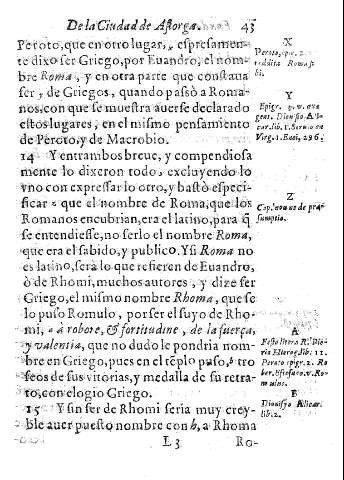 De la Ciudad de Astorga. 43
Peroto, que en otro lugar, espresamen-
te dixo ser Griego, por Euandro, el nom-
bre Roma, y en otra parte que constaua
ser, de Griegos, quando passò a Roma-
nos, con que se muestra auerse declarado
estos lugares, en el mismo pensamiento
de Peroto, y de Macrobio.
14 Y entrambos breue, y compendiosa
mente lo dixeron todo, excluyendo lo
vno con expressar lo otro, y bastò especi-
ficar z que el nombre de Roma, que los
Romanos encubrian, era el latino, para q̃
se entendiesse, no serlo el nombre Roma,
que era el sabido, y publico. Y si Roma no
es latino, sera lo que refieren de Euandro,
ò de Rhomi, muchos autores, y dize ser
Griego, el mismo nombre Rhoma, que se
lo puso Romulo, por ser el suyo de Rho-
mi, a à robore, & fortitudine, de la fuerça,
y valentia, que no dudo le pondria nom-
bre en Griego, pues en el tẽplo puso, b tro
feos de sus vitorias, y medalla de su retra-
to, con elogio Griego.
15 Y sin ser de Rhomi seria muy crey-
ble auer puesto nombre con h, a Rhoma
L 3 Ro-
X
Peroto, epi. 2.
reddita Roma si-
bi.
Y
Epigr.
gent. Dionisio A
car. lib. 1. Seruio en
Virg. 1. Enei, 296.
Z
Cap. nonne de præ
sumptio.
A
Festo litera R. Dio-
nio Eterog. lib. 11.
Peroto epigr. 2. Ro
ber. Estefano. v. Ro-
mulus.
B
Dionisio Alicar.
lib. 2.